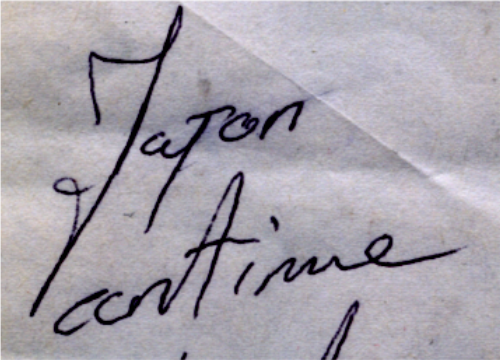 Japon
continue